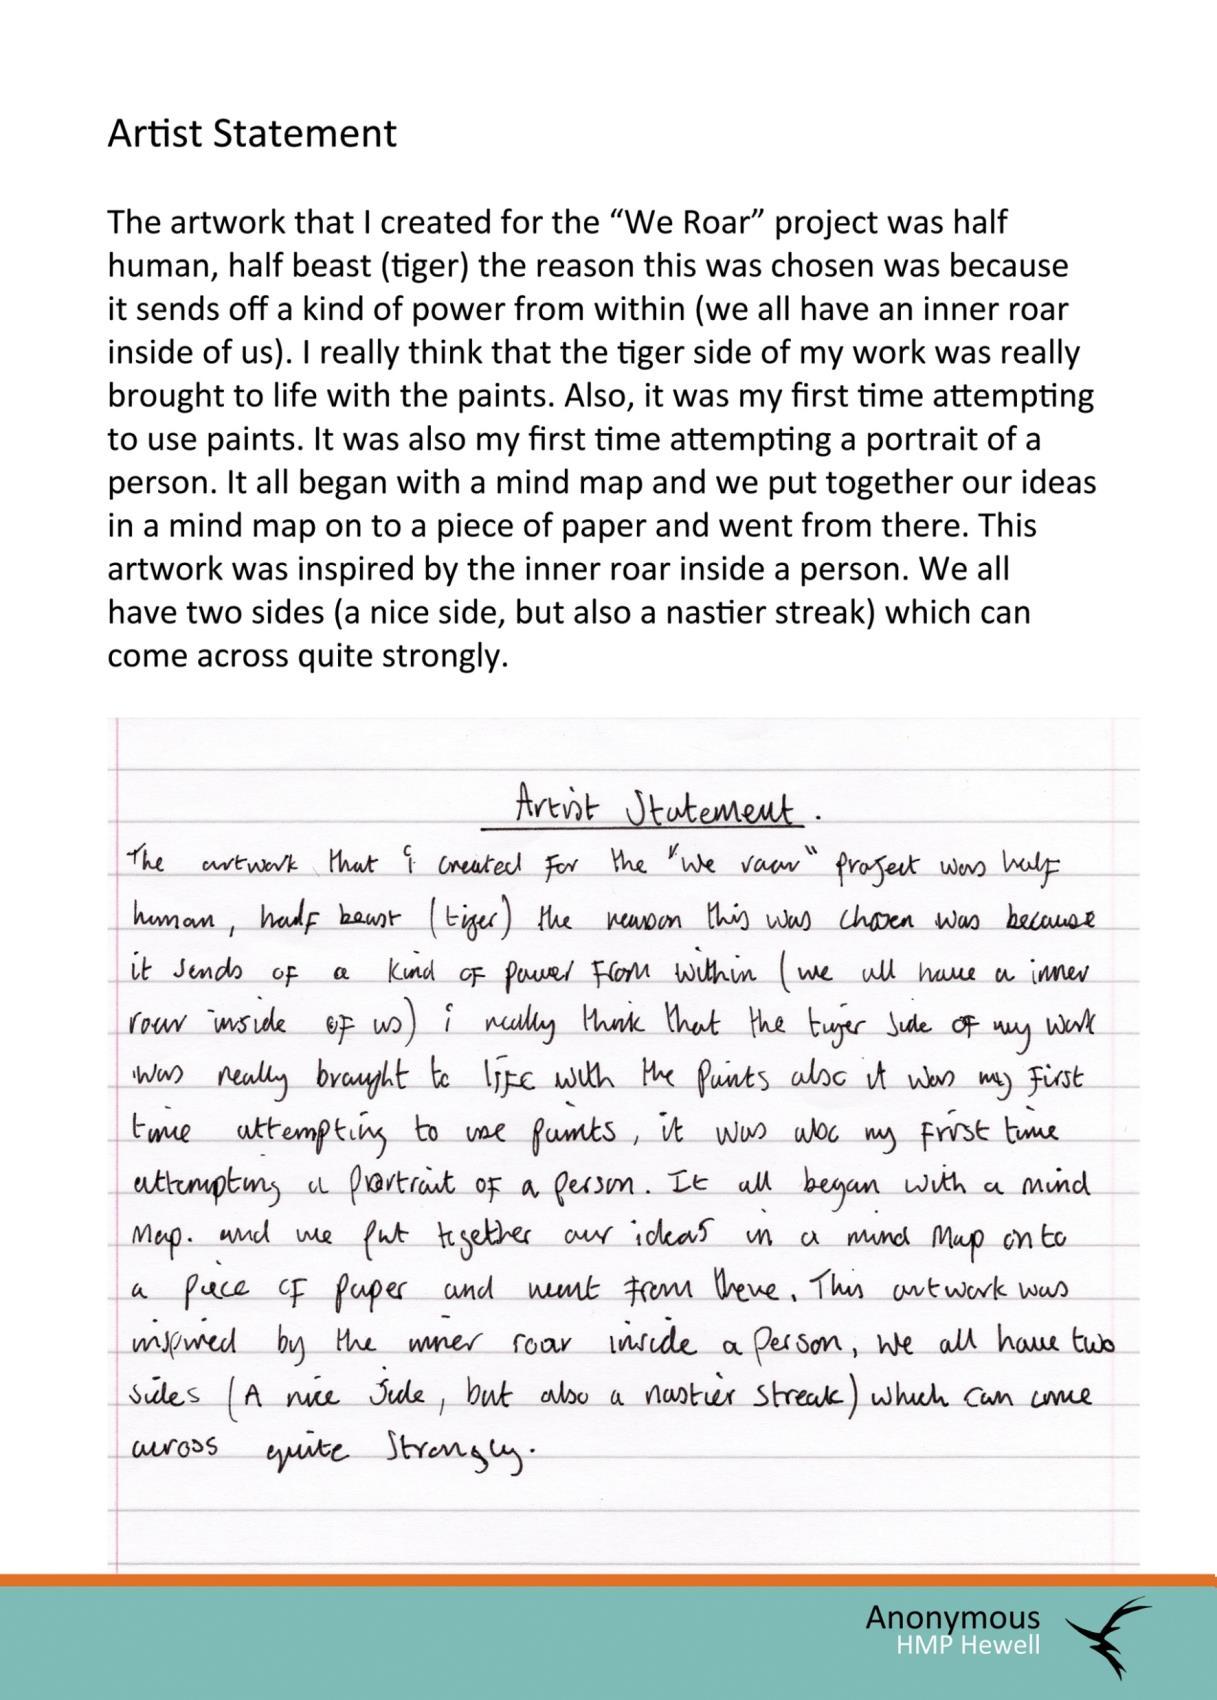 Artist Statement
The artwork that I created for the “We Roar” project was half
human, half beast (tiger) the reason this was chosen was because
it sends off a kind of power from within (we all have an inner roar
inside of us). I really think that the tiger side of my work was really
brought to life with the paints. Also, it was my first time attempting
to use paints. It was also my first time attempting a portrait of a
person. It all began with a mind map and we put together our ideas
in a mind map on to a piece of paper and went from there. This
artwork was inspired by the inner roar inside a person. We all
have two sides (a nice side, but also a nastier streak) which can
come across quite strongly.
Artist Statement.
The artwork that i created for the "We roar" project was half
human, half beast (tiger) the reason this was chosen was because
it sends of a kind of power from within (we all have a inner
roar inside of us) i really think that the tiger side of my work
was really braught to life with the paints also it was my first
time attempting to use paints, it was also my first time
attempting a portrait of a person. It all began with a mind
Map. and we put together our ideas in a mind Map onto
a piece of paper and went from there. This artwork was
inspired by the inner roar inside a person, we all have two
sides (A nice side, but also a nastier streak) which can come
across quite strongly.
Anonymous
HMP Hewell